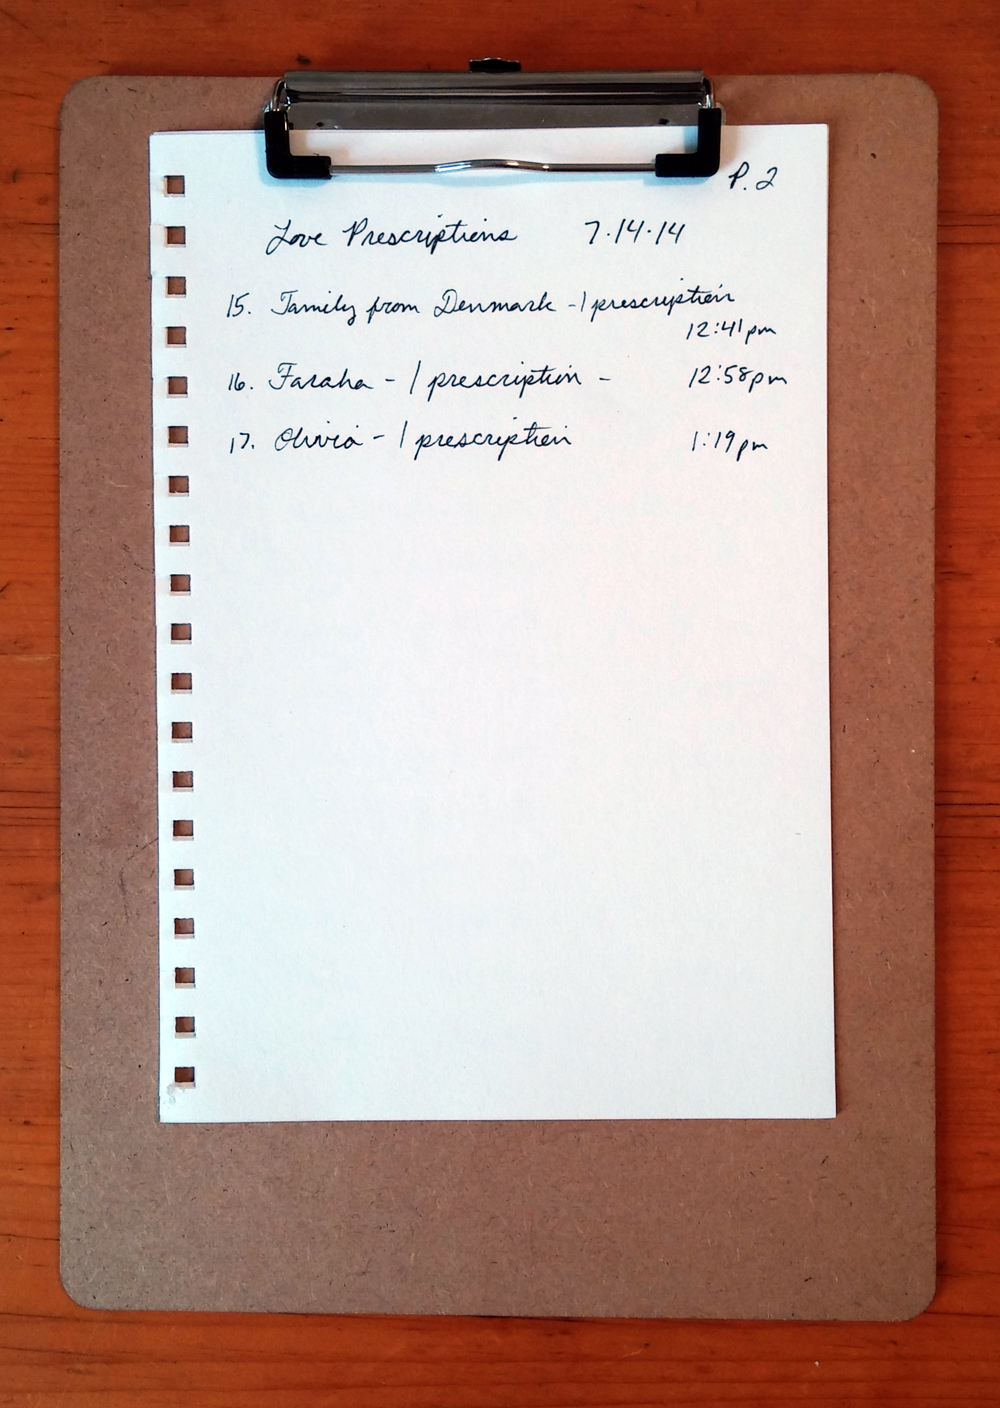 P. 2
Love Prescriptions 7.14.14
15. Family from Denmark - 1 prescription
12:41 pm
16. Faraha - 1 prescription - 12:58pm
17. Olivia - 1 prescription 1:19pm